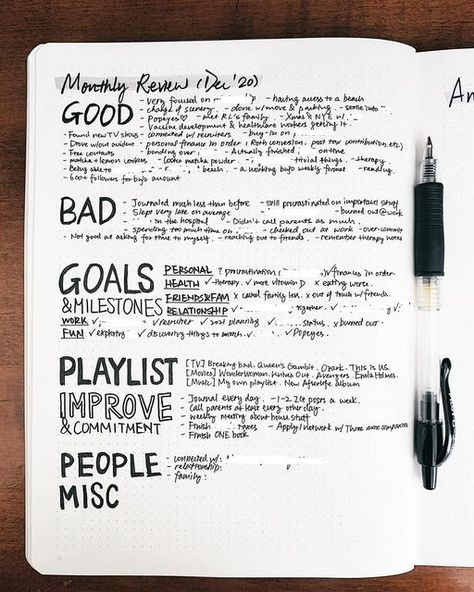 Monthly Review (Dec '20)
An
GOOD
- very focused on - having access to a beach
- change of scenery - done w/move & packing - settle into
- Popeyes♡ - met RL's family - Xmas & NYE w/
- Vaccine development & healthcare workers getting it
- Found new TV shows - connected w/ recruiters - buy-in on
- Drove w/out incident - personal finance in order (Roth conversion, post tax contribution, etc)
- Free contacts - bonding over - Actually finished on time
- matcha + lemon cookies - matcha powder - trivial things - therapy
- Being able to beach - a working bujo weekly format - reading
- 600+ followers for bujo account
BAD
- Journaled much less than before - still procrastinated on important stuff
- Slept very late on average - burned out @work
- in the hospital - Didn't call parents as much
- spending too much time on - checked out at work - over commit
- Not good at asking for time to myself - reaching out to friends - remember therapy notes
GOALS
& MILESTONES
PERSONAL ? procrastination ( finances in order
HEALTH ✓ therapy ✓ more vitamin D x eating worse
FRIENDS&FAM x called family less x out of touch w/ friends
RELATIONSHIP ✓ together ✓
WORK ✓ ✓ recruiter ✓ 2021 planning ✓ status x burned out
FUN ✓ exploring ✓ discovering things to watch ✓ ✓ Popeyes
PLAYLIST
[TV] Breaking bad. Queen's Gambit. Ozark. This is US.
[Movies] WonderWoman. Knives Out. Avengers. Enola Holmes.
[Music] My own playlist. New Afterlife album
IMPROVE
& COMMITMENT
- Journal every day. - 1-2 IG posts a week.
- Call parents at least every other day.
- Weekly meeting about house stuff
- Finish taxes - Apply/Network w/ Three more companies
- Finish ONE book
PEOPLE
- connected w:
- relationship:
- family:
MISC